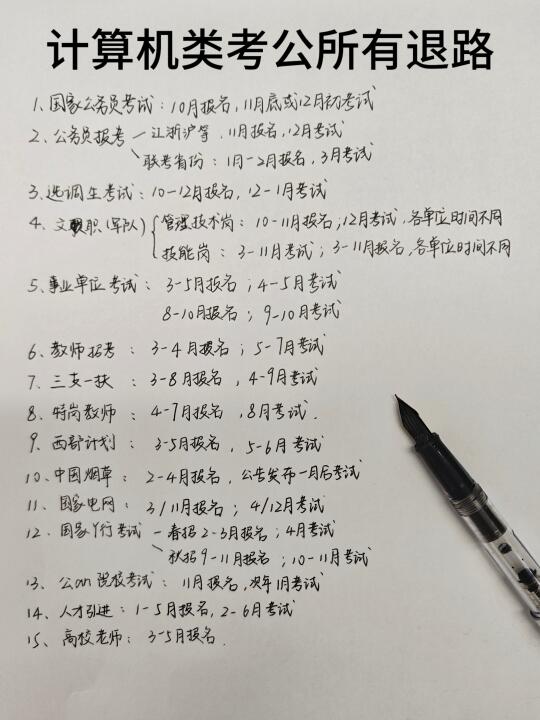 计算机类考公所有退路
1、国家公务员考试：10月报名，11月底或12月初考试
2、公务员报考 — 江浙沪等，11月报名，12月考试
联考省份：1月-2月报名，3月考试
3、选调生考试：10-12月报名，12-1月考试
4、文职(军队) 管理技术岗：10-11月报名；12月考试，各单位时间不同
技能岗：3-11月考试；3-11月报名，各单位时间不同
5、事业单位考试：3-5月报名；4-5月考试
8-10月报名；9-10月考试
6、教师招考：3-4月报名；5-7月考试
7、三支一扶：3-8月报名，4-9月考试
8、特岗教师：4-7月报名，8月考试.
9、西部计划：3-5月报名，5-6月考试
10、中国烟草：2-4月报名，公告发布一月后考试
11、国家电网：3/11月报名；4/12月考试
12、国家Y行考试 — 春招2-3月报名；4月考试
秋招9-11月报名；10-11月考试
13、公an院校考试：11月报名，次年1月考试
14、人才引进：1-5月报名，2-6月考试
15、高校老师：3-5月报名.